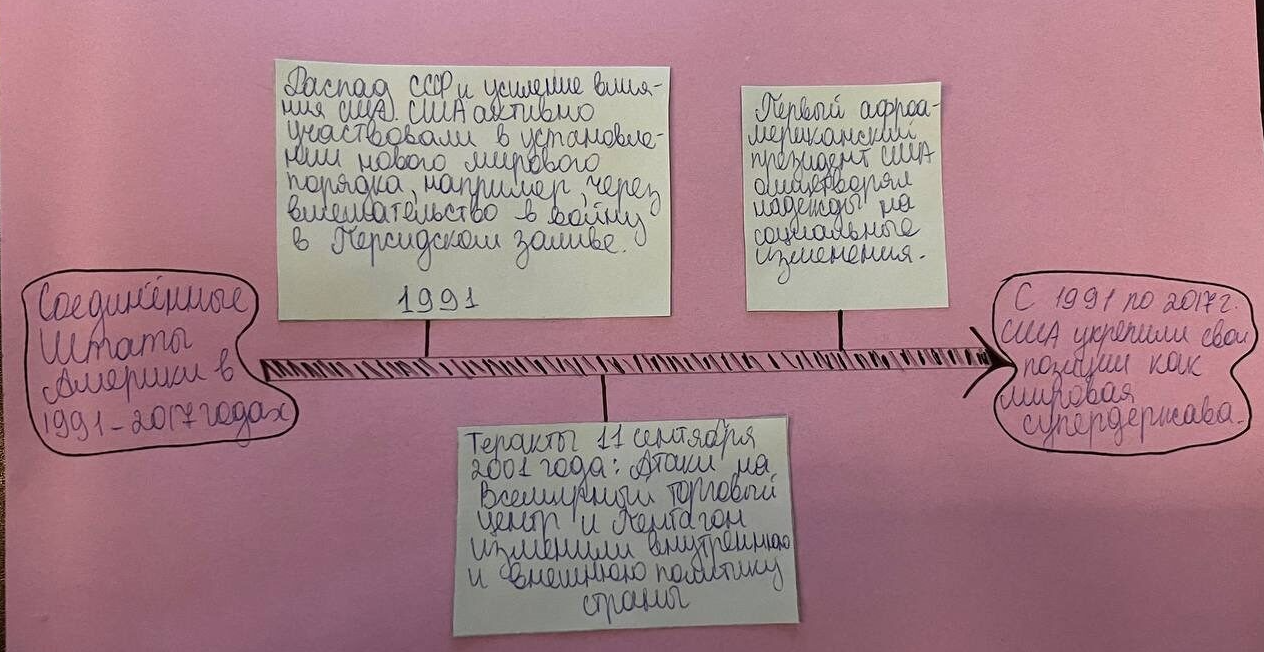 Соединённые
Штаты
Америки в
1991-2017 годах
Распад СССР и усиление влия-
ния США. США активно
участвовали в установле-
нии нового мирового
порядка, например, через
вмешательство в войну
в Персидском заливе.
1991
Теракты 11 сентября
2001 года: Атаки на
Всемирный торговый
центр и Пентагон
изменили внутреннюю
и внешнюю политику
страны
Первый афроа-
мериканский
президент США
олицетворял
надежды на
социальные
изменения.
С 1991 по 2017 г.
США укрепили свои
позиции как
мировая
супердержава.